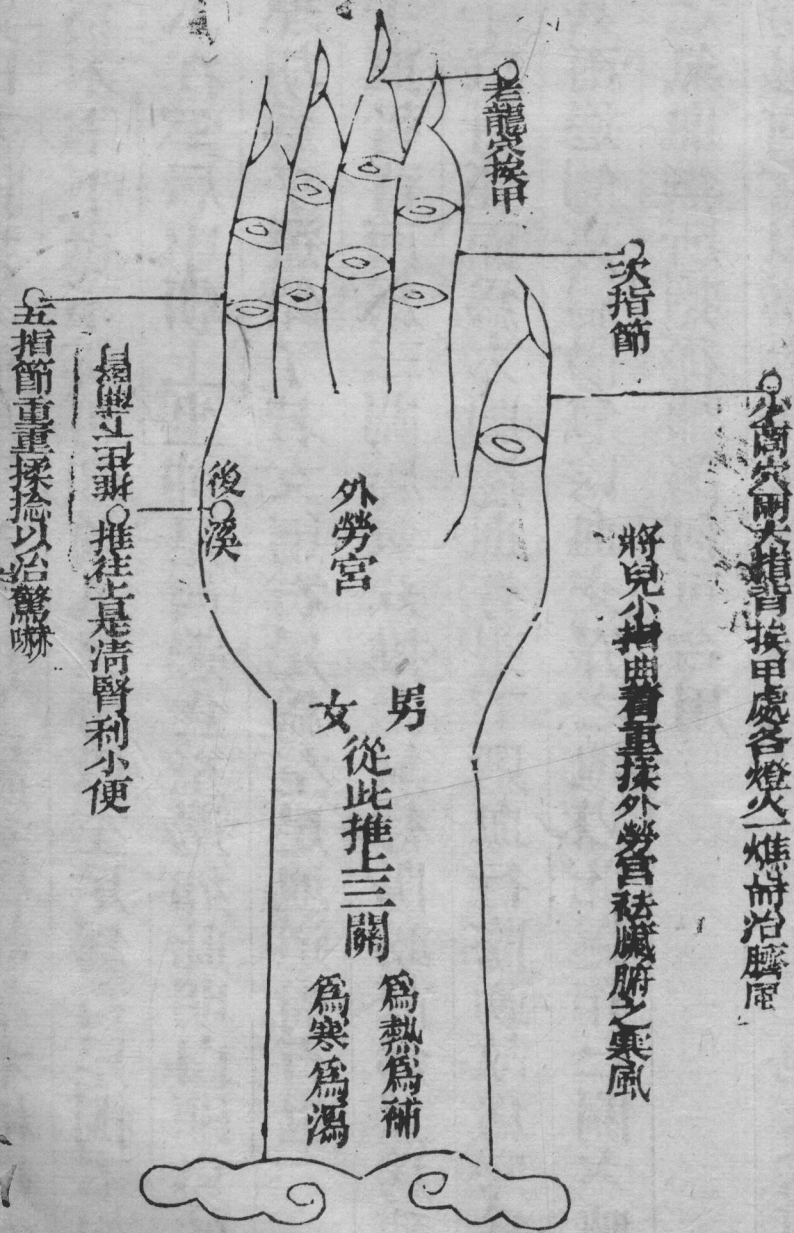 少商穴兩大指背挨甲處各燈火一燋專治臍風
將兒小指曲着重揉外勞宮祛臟腑之寒風
次指節
老龍穴挨甲
外勞宮
男
女
從此推上三關
為熱為補
為寒為瀉
後溪
推往上是清腎利小便
五指節重重揉捻以治驚嚇